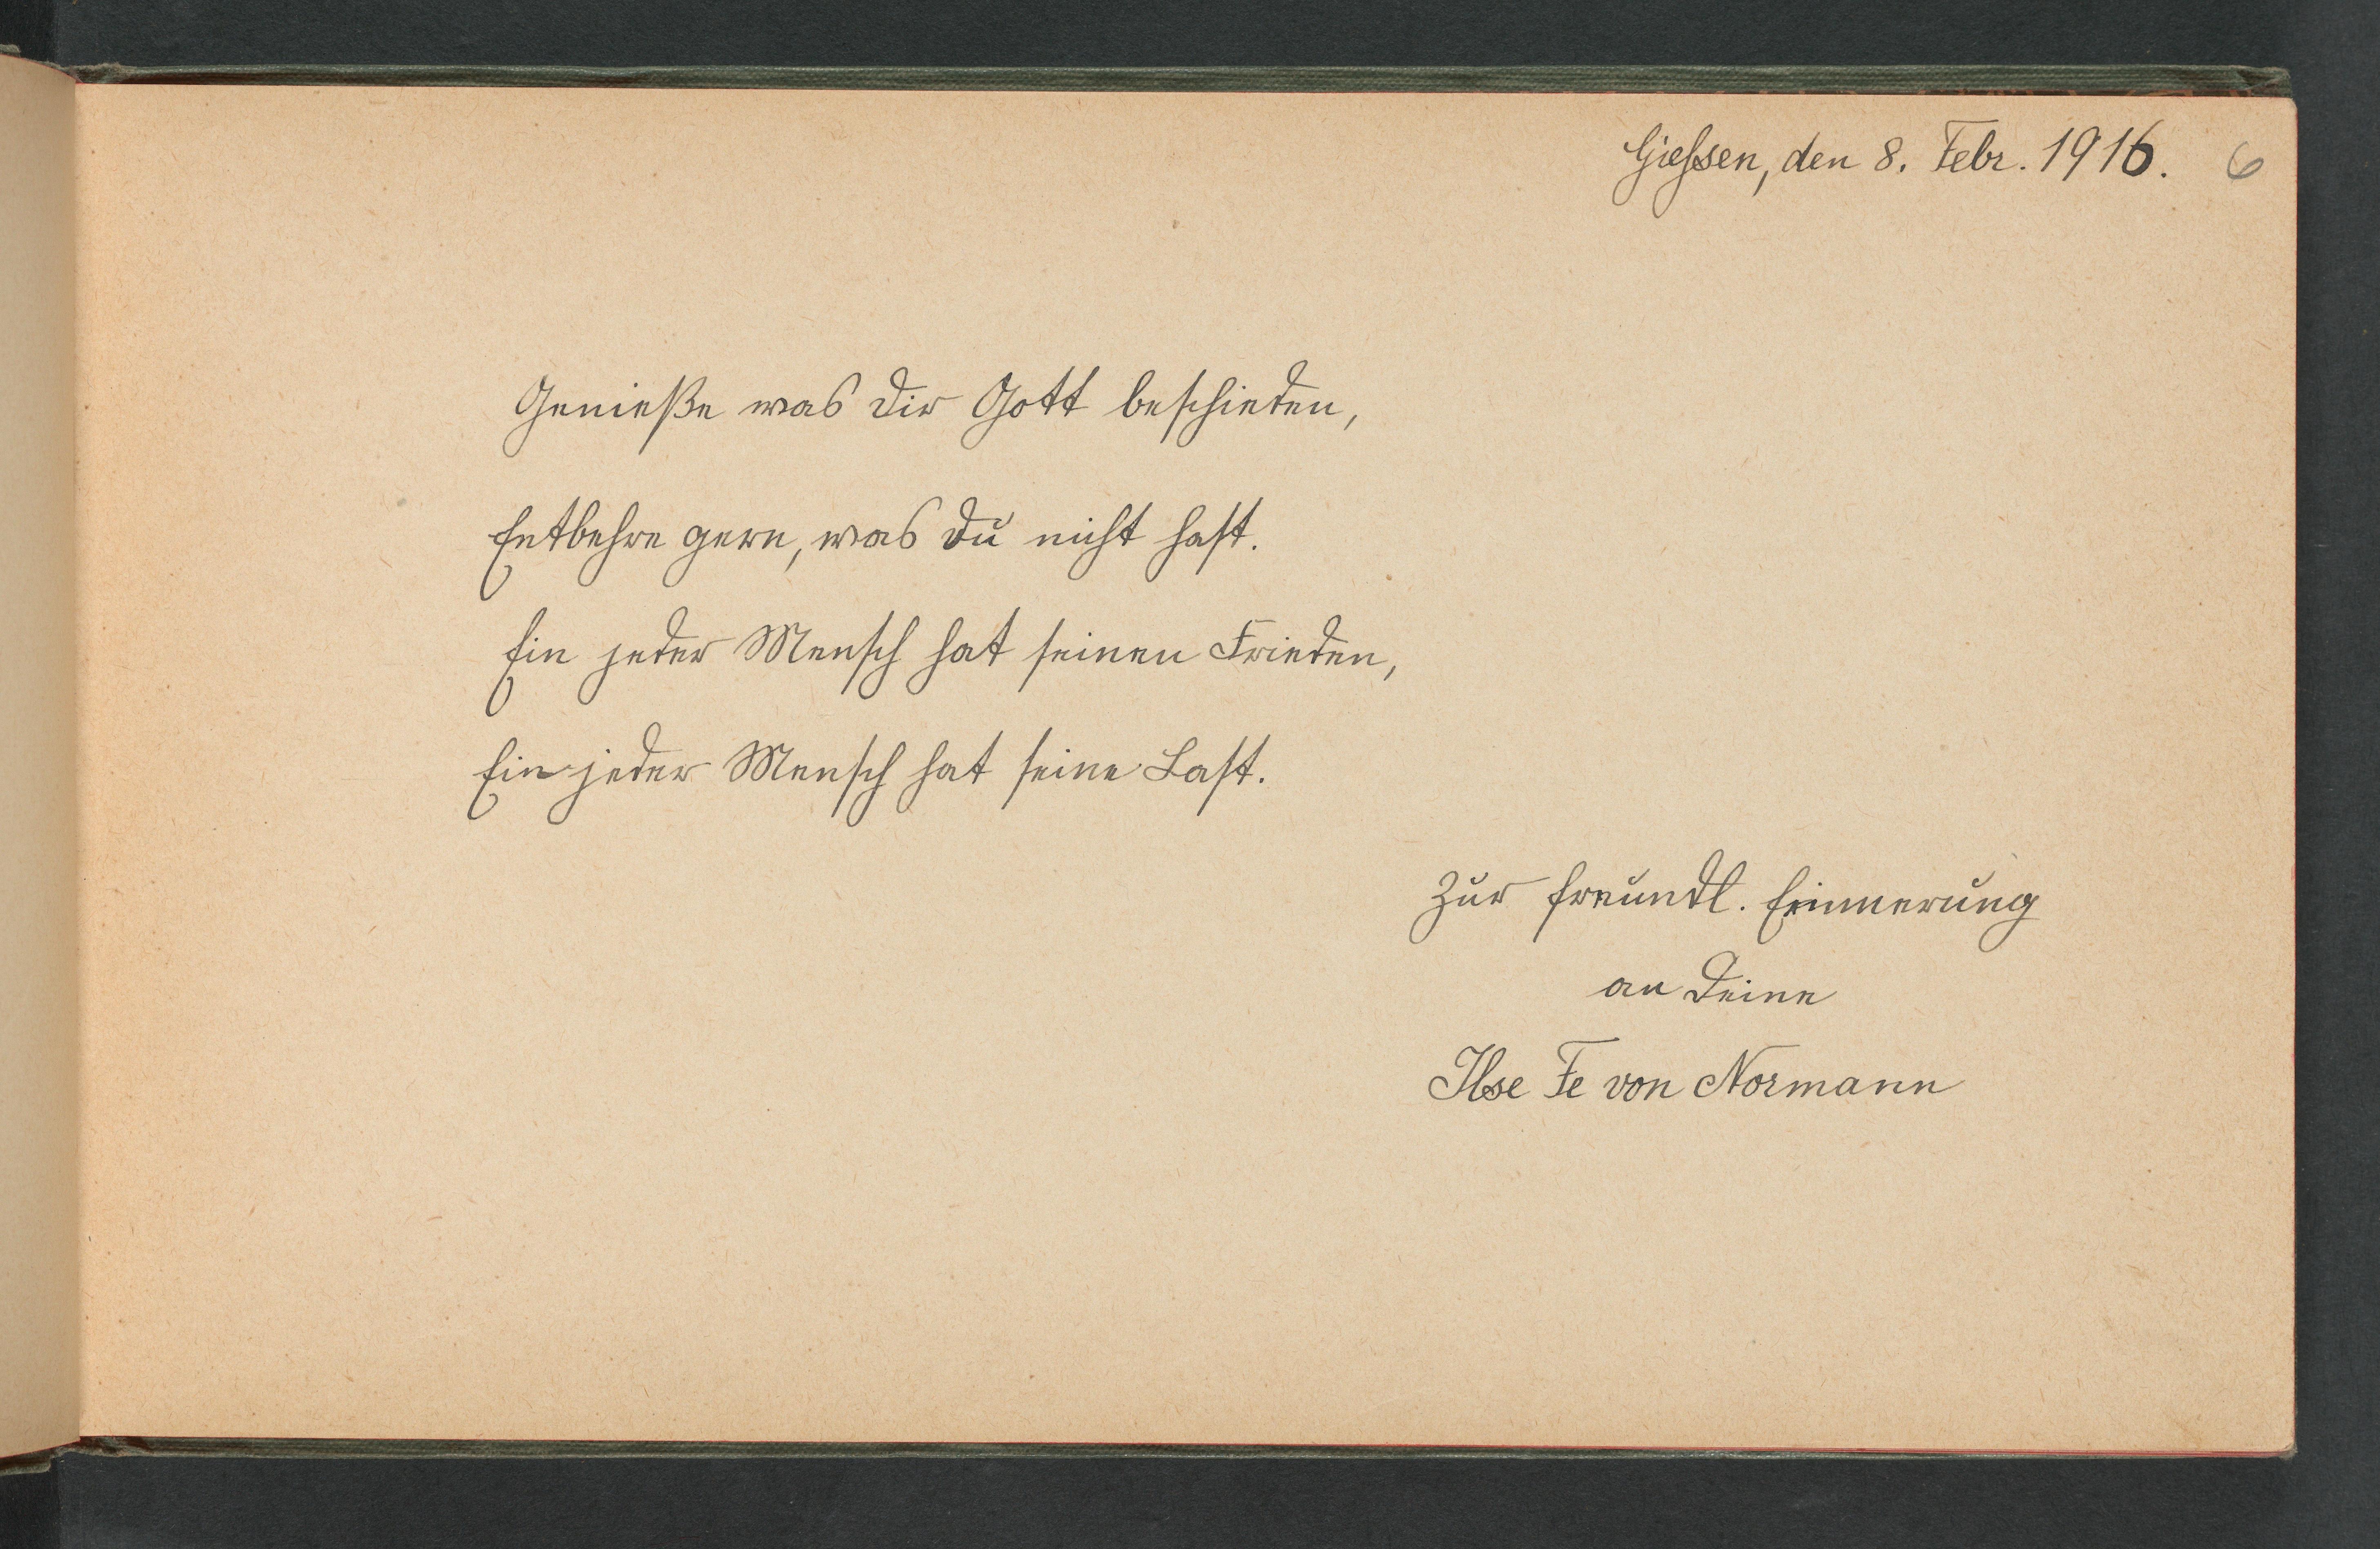 Giessen, den 8. Febr. 1916. 6
Genieße was dir Gott beschieden,
Entbehre gern, was du nicht hast.
Ein jeder Mensch hat seinen Frieden,
Ein jeder Mensch hat seine Last.
Zur freundl. Erinnerung
an Deine
Ilse Fe von Normann